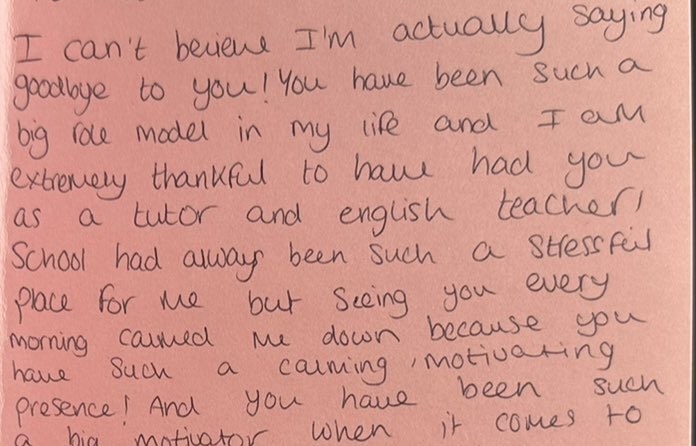 I can't believe I'm actually saying
goodbye to you! You have been such a
big role model in my life and I am
extremely thankful to have had you
as a tutor and english teacher!
School had always been such a stressful
place for me but seeing you every
morning calmed me down because you
have such a calming, motivating
presence! And you have been such
a big motivator when it comes to